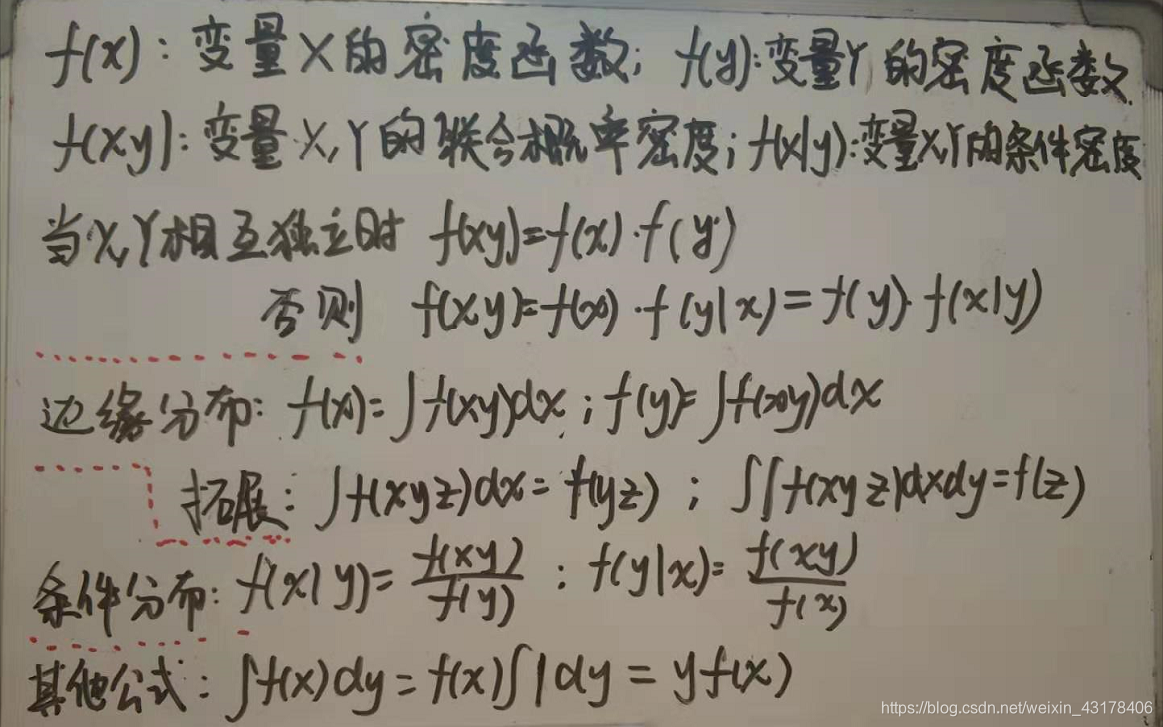 f(x)：变量X的密度函数；f(y)：变量Y的密度函数.
f(xy)：变量X,Y的联合概率密度；f(x|y)：变量X,Y的条件密度
当X,Y相互独立时 f(xy)=f(x)·f(y)
否则 f(xy)=f(x)·f(y|x)=f(y)·f(x|y)
边缘分布：f(x)=∫f(xy)dx；f(y)=∫f(xy)dx
拓展：∫f(xyz)dx=f(yz)；∫∫f(xyz)dxdy=f(z)
条件分布：f(x|y)=f(xy)/f(y)；f(y|x)=f(xy)/f(x)
其他公式：∫f(x)dy=f(x)∫1dy=yf(x)
https://blog.csdn.net/weixin_43178406